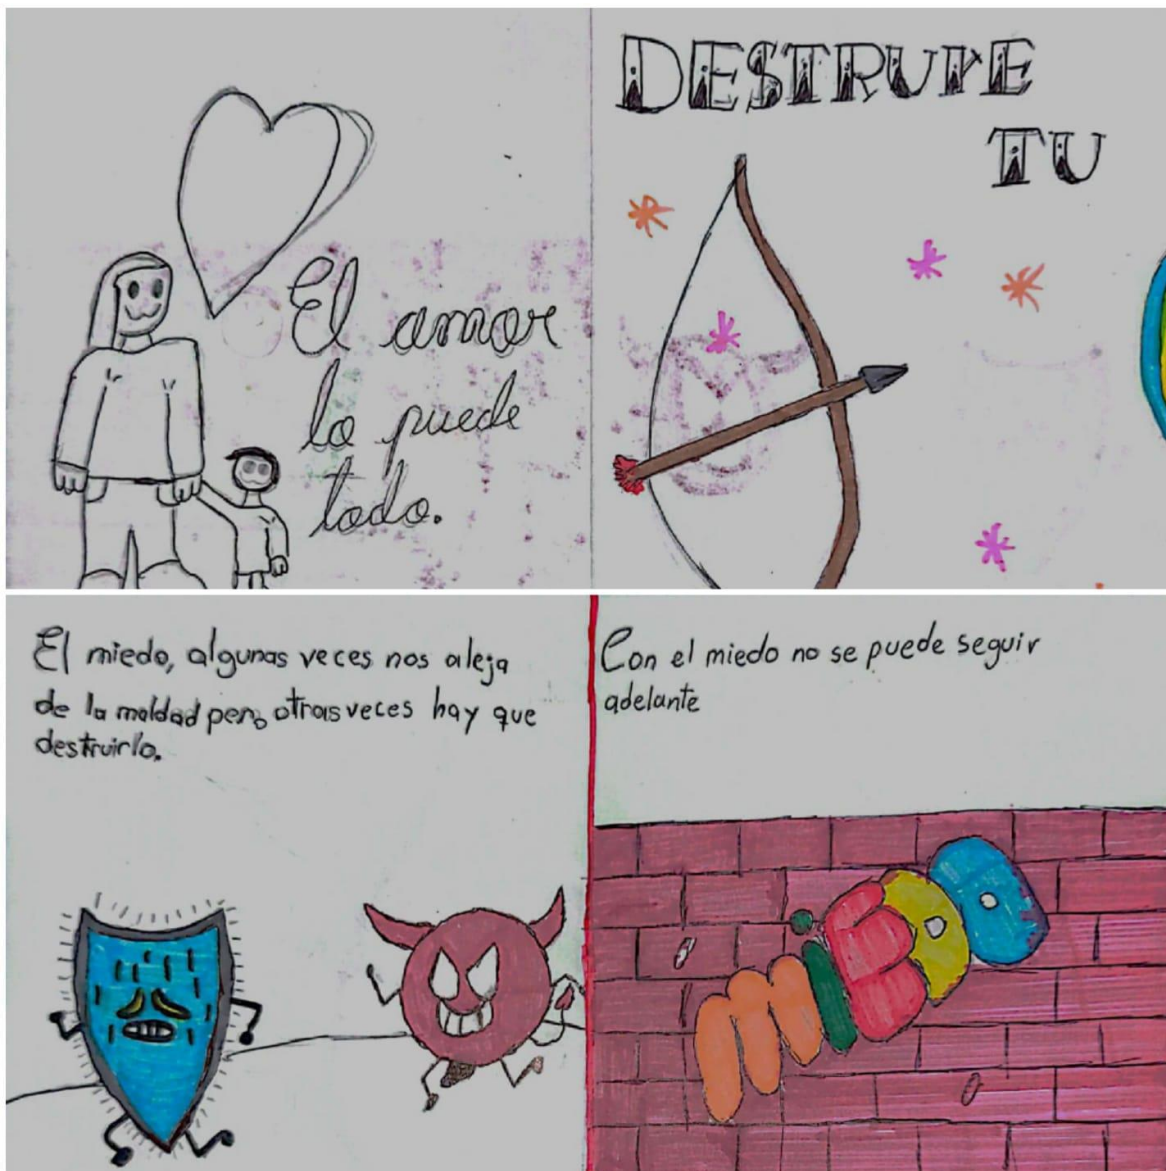 El amor
lo puede
todo.
DESTRUYE
TU
El miedo, algunas veces nos aleja
de la maldad pero, otras veces hay que
destruirlo.
Con el miedo no se puede seguir
adelante
miedo